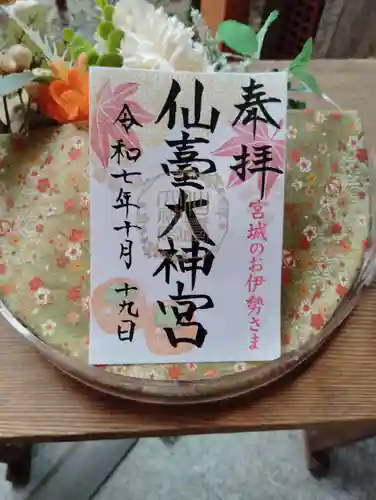 奉拝
宮城のお伊勢さま
仙臺大神宮
令和七年十月十九日